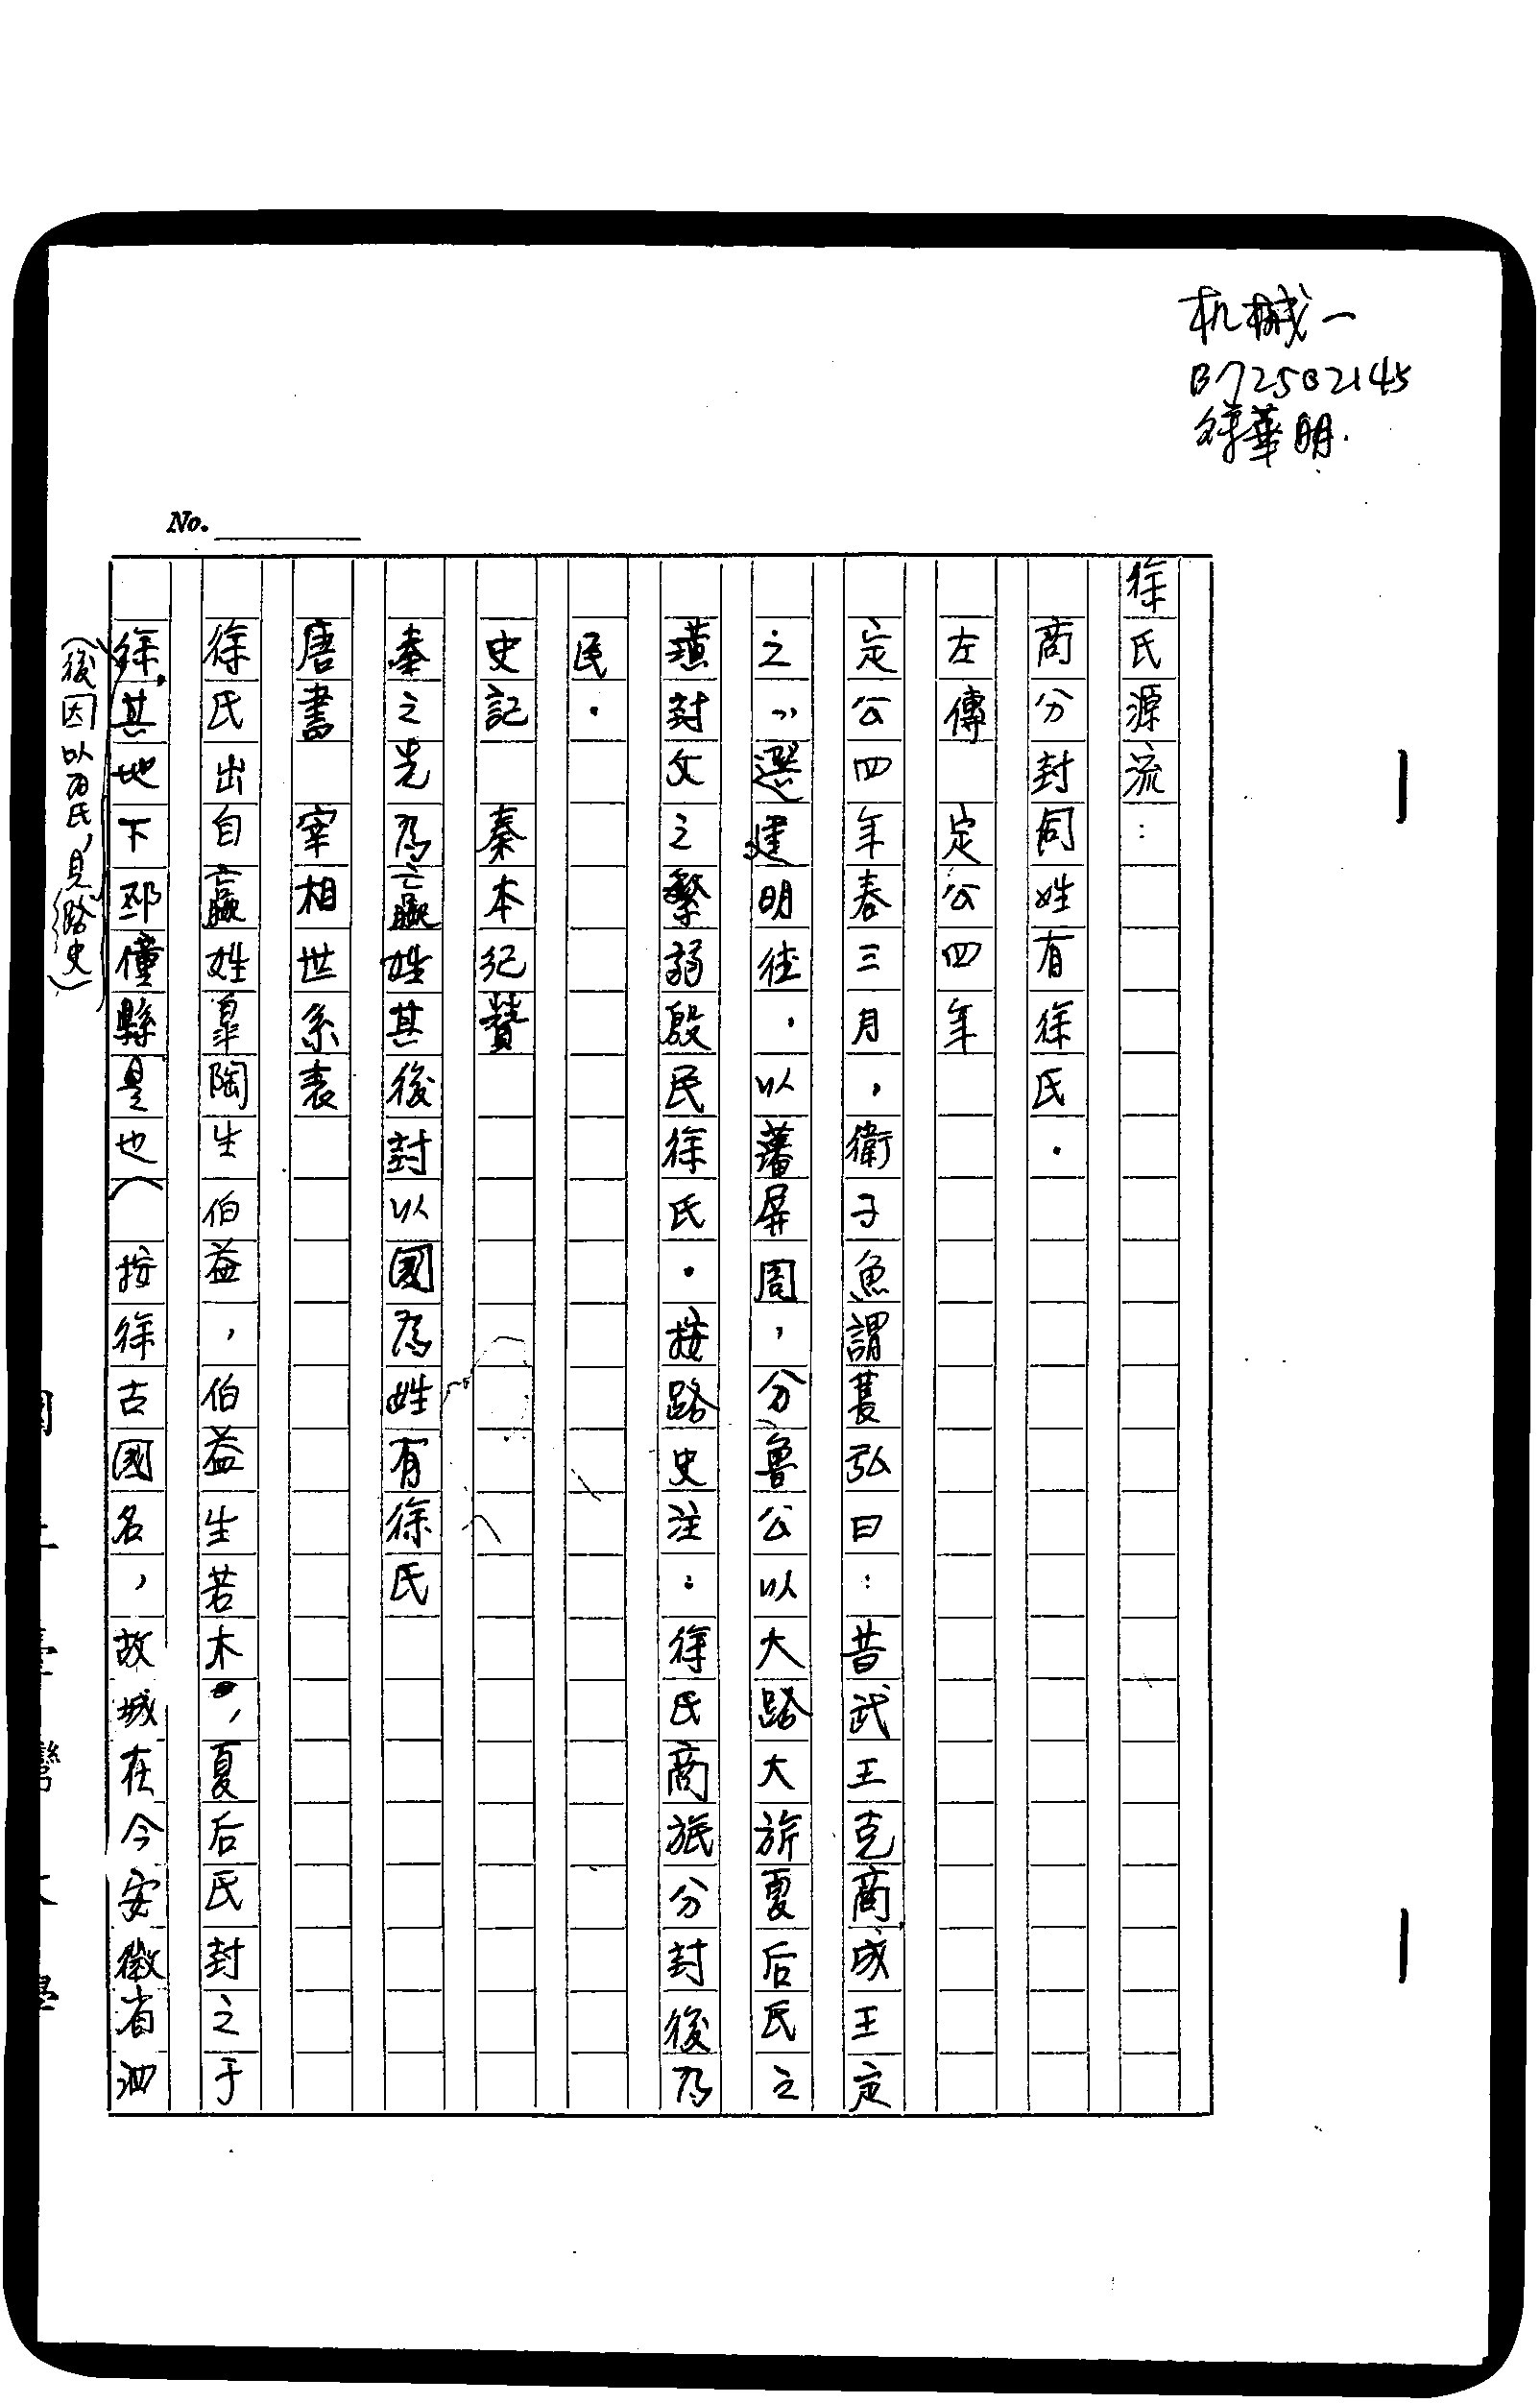 机械一
B72502145
徐華明.
No.
徐氏源流:
商分封同姓有徐氏.
左傳 定公四年
定公四年春三月,衛子魚謂萇弘曰:昔武王克商成王定
之,選建明德.以藩屏周,分魯公以大路大旂夏后氏之
璜封父之繁弱殷民徐氏.按路史注:徐氏商族分封後為
民.
史記 秦本紀贊
秦之先為嬴姓其後封以國為姓有徐氏
唐書 宰相世系表
徐氏出自嬴姓皐陶生伯益,伯益生若木,夏后氏封之于
徐,其地下邳僮縣是也(按徐古國名,故城在今安徽省泗
(後因以為氏,見路史)
國立臺灣大學